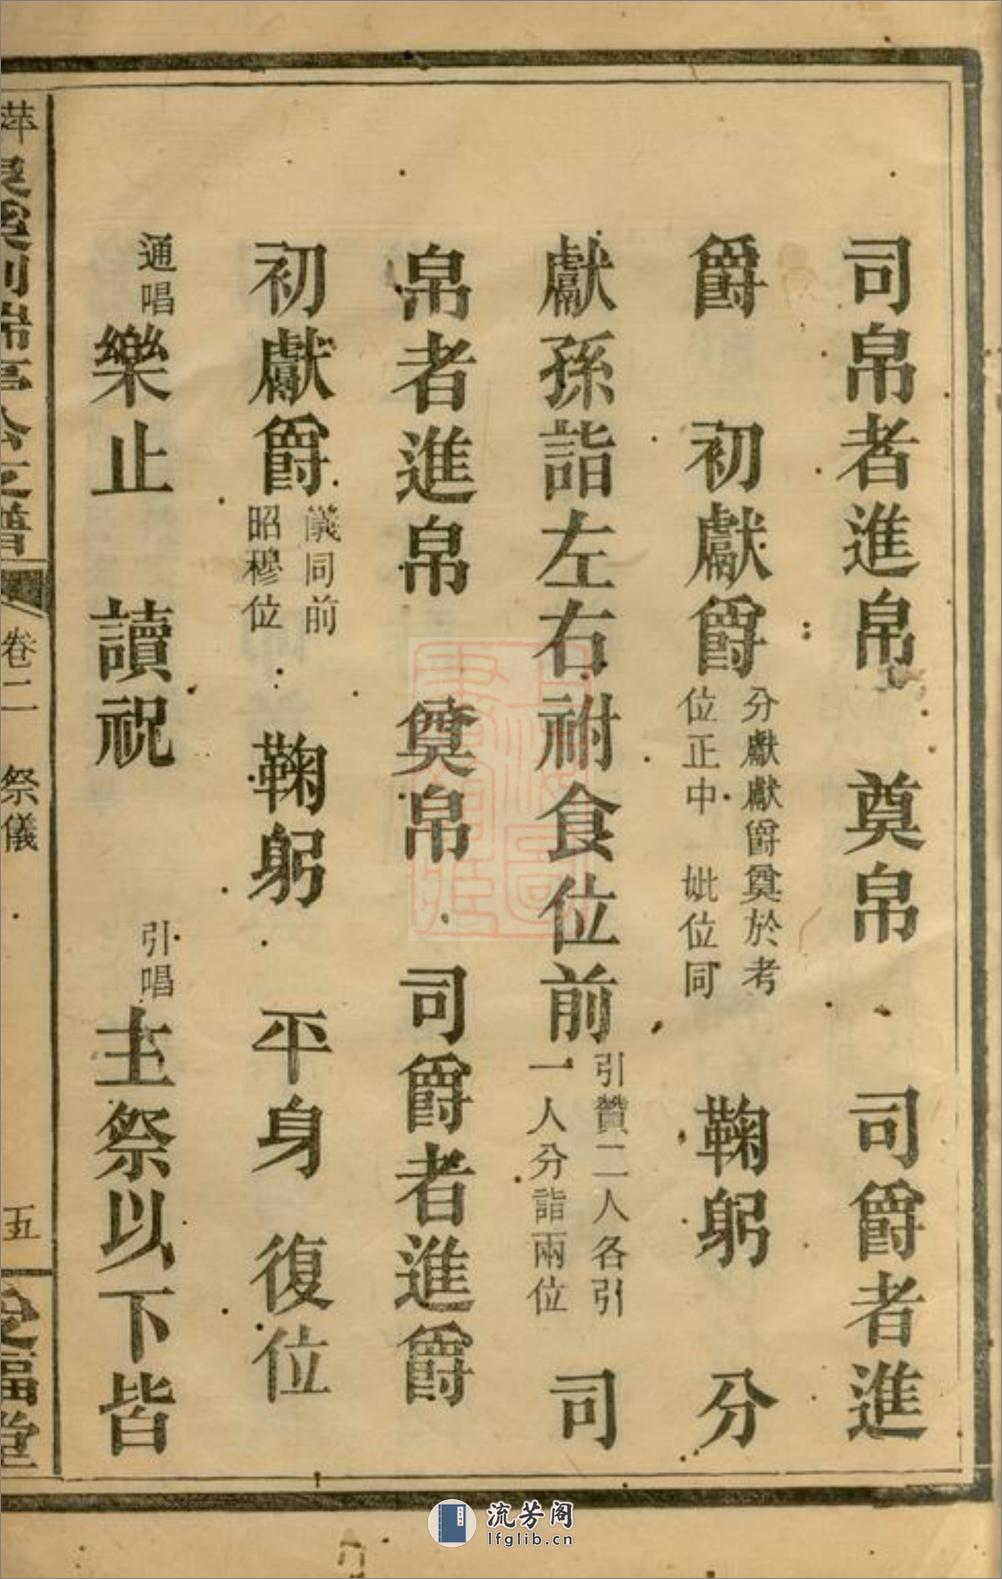 司帛者進帛　奠帛　司爵者進
爵　初獻爵 分獻獻爵奠於考位正中　妣位同　鞠躬　分
獻孫詣左右祔食位前 引贊二人各引一人分詣兩位　司
帛者進帛　奠帛　司爵者進爵
初獻爵 儀同前昭穆位　鞠躬　平身　復位
通唱 樂止　讀祝　引唱 主祭以下皆
卷二　祭儀
五
受福堂
流芳阁
lfglib.cn